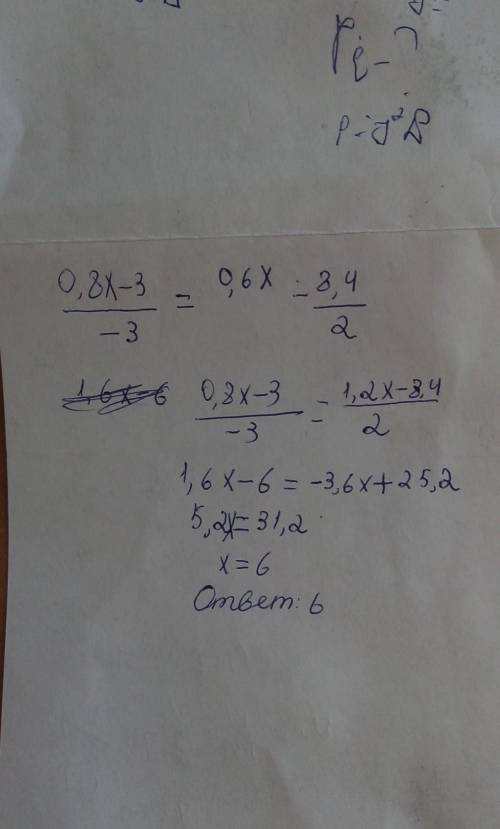 P = J²R
(0,8x-3)/-3 = 0,6x - 8,4/2
(0,8x-3)/-3 = (1,2x-8,4)/2
1,6x-6 = -3,6x+25,2
5,2x=31,2
x=6
Ответ: 6